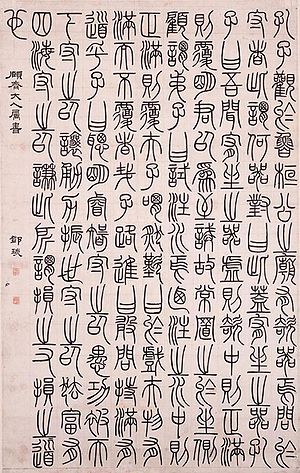 孔子觀於魯桓公之廟有欹器焉問於
守者此謂何器對曰此蓋宥坐之器孔
子曰吾聞宥坐之器虛則欹中則正滿
則覆明君以爲至誡故常置之於坐側
顧謂弟子曰試注水焉乃注之水中則
正滿則覆夫子喟然歎曰於戲夫物有
滿而不覆者哉子路進曰敢問持滿有
道乎子曰聰明睿智守之以愚功被天
下守之以讓勇力振世守之以怯富有
四海守之以謙此所謂損之又損之道
也
大人屬書
鄧琰